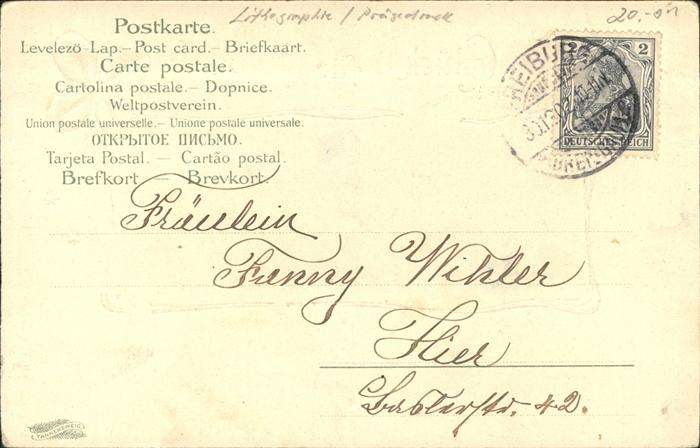 Lithographie / Prägedruck
20.-
Postkarte.
Levelező-Lap. – Post card. – Briefkaart.
Carte postale.
Cartolina postale. – Dopnice.
Weltpostverein.
Union postale universelle. – Unione postale universale.
ОТКРЫТОЕ ПИСЬМО.
Tarjeta Postal. – Cartão postal.
Brefkort – Brevkort.
2
DEUTSCHES REICH
FREIBURG
Fräulein
Fanny
Hier
Baslerstr. 42.